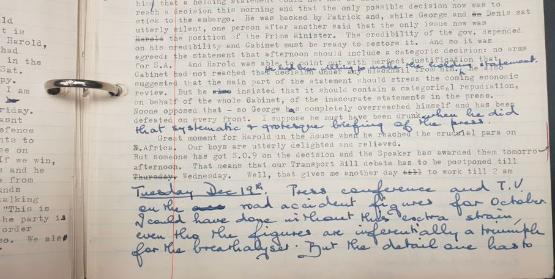 him that a holding statement could not
reach a decision this morning and that the only possible decision now was to
stick to the embargo. He was backed by Patrick and, while George and Denis sat
utterly silent, one person after another said that the only issue now was
the position of the Prime Minister. The credibility of the gov. depended
on his credibility and Cabinet must be ready to restore it. And so it was
agreed: the statement that afternoon should include a categoric decision: no arms
for S.A. and Harold was able to point with perfect justification that
Cabinet had not reached that decision under
suggested that the main part of the statement should stress the coming economic
review. But he insisted that it should contain a categorical repudiation,
on behalf of the whole Cabinet, of the inaccurate statements in the press.
Noone opposed that - so George has completely overreached himself and has been
defeated on every front. I suppose he must have been drunk when he did
that systematic & grotesque briefing of the press.
Great moment for Harold in the House when he reached the crucial para on
S.Africa. Our boys are utterly delighted and relieved.
But someone has got S.O.9 on the decision and the Speaker has awarded them tomorrow
afternoon. That means that our Transport bill debate has to be postponed till
Thursday Wednesday. Well, that gives me another day till to work till 2 am
Tuesday Dec 19th. Press conference and T.V.
on the road accident figures for October
I could have done without this extra strain,
even tho the figures are inferentially a triumph
for the breathalyser. But the detail one has to
Harold,
had
in the
Sat
py.
I am
riday.
asnt
efence
nts to
ee on
If we win,
and he
from
ands
alking
"This is
he party is
order
so. We also